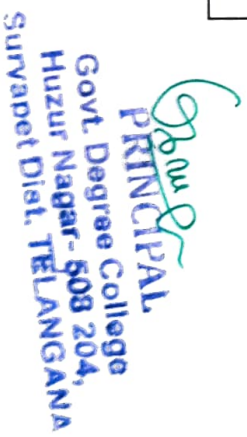 PRINCIPAL
Govt. Degree College
Huzur Nagar- 508 204,
Suryapet Dist. TELANGANA